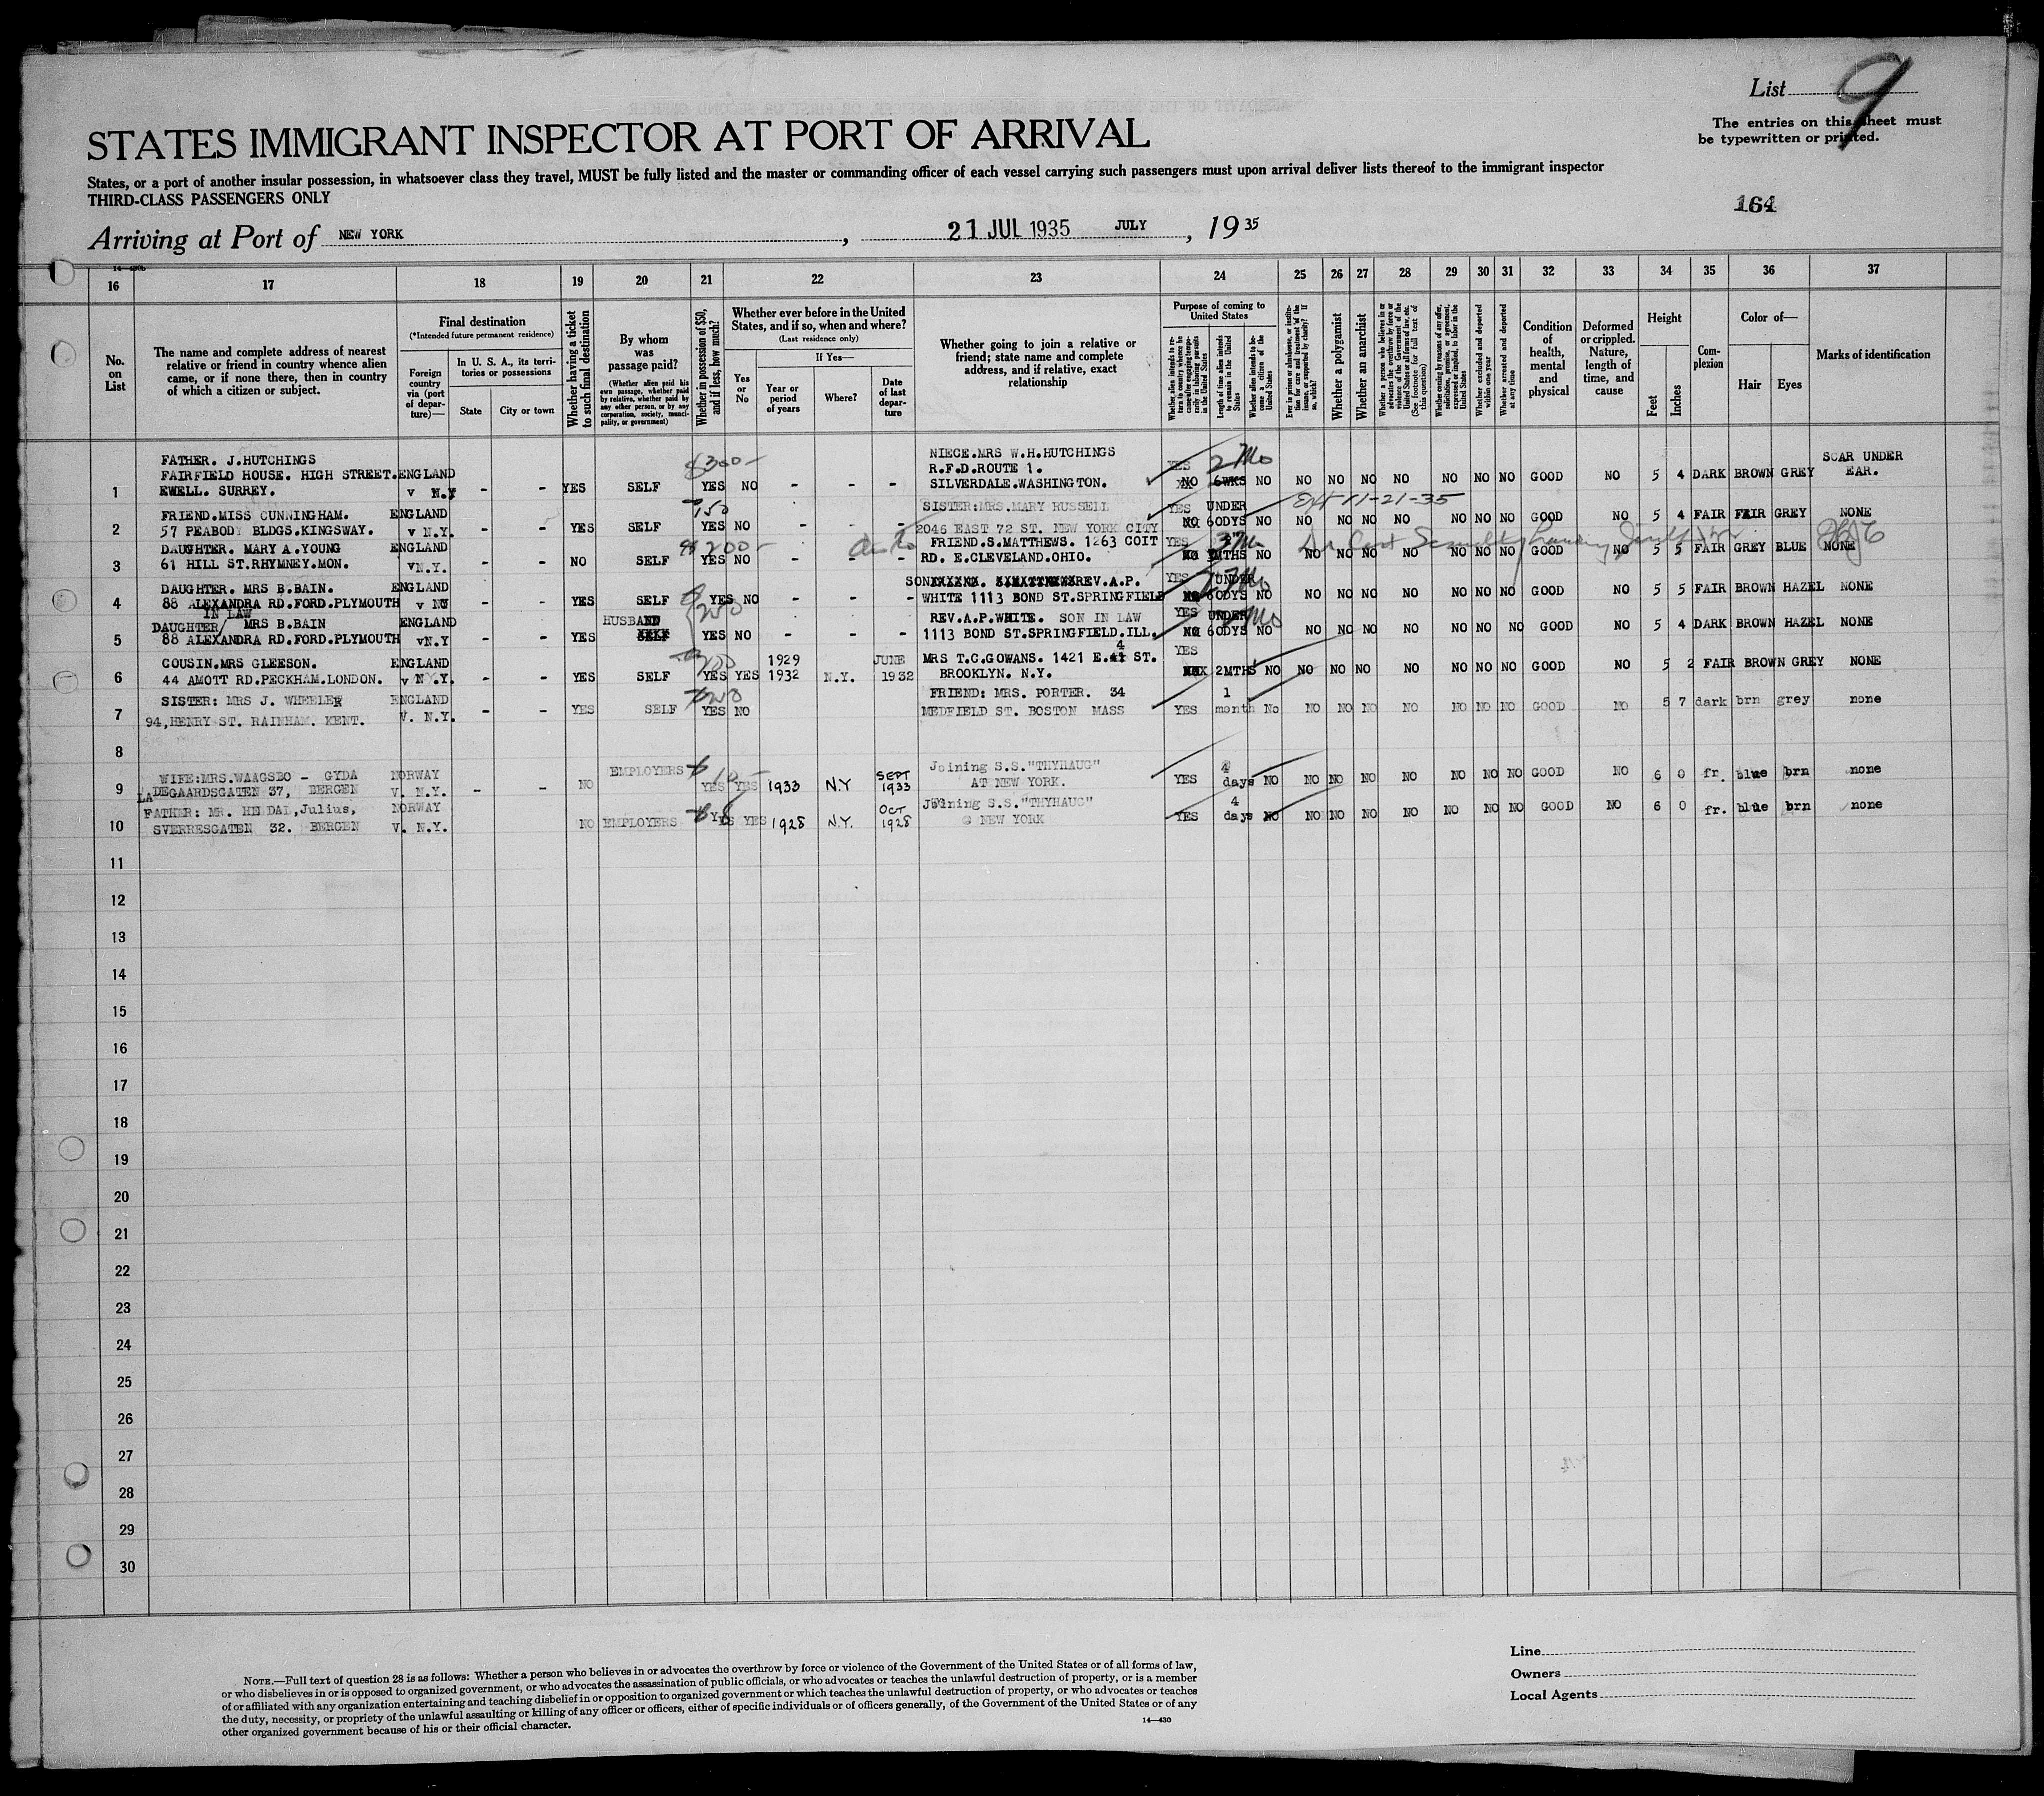 List 9
The entries on this sheet must
be typewritten or printed.
STATES IMMIGRANT INSPECTOR AT PORT OF ARRIVAL
States, or a port of another insular possession, in whatsoever class they travel, MUST be fully listed and the master or commanding officer of each vessel carrying such passengers must upon arrival deliver lists thereof to the immigrant inspector
THIRD-CLASS PASSENGERS ONLY
164
Arriving at Port of NEW YORK, 21 JUL 1935 JULY, 1935
16 17 18 19 20 21 22 23 24 25 26 27 28 29 30 31 32 33 34 35 36 37
No. on List
The name and complete address of nearest
relative or friend in country whence alien
came, or if none there, then in country
of which a citizen or subject.
Final destination
(*Intended future permanent residence)
Foreign country via (port of departure)—
In U. S. A., its territories or possessions
State
City or town
Whether having a ticket to such final destination
By whom was passage paid?
(Whether alien paid his own passage, whether paid by relative, whether paid by any other person, or by any corporation, society, municipality, or government)
Whether in possession of $50, and if less, how much?
Whether ever before in the United
States, and if so, when and where?
(Last residence only)
Yes or No
If Yes—
Year or period of years
Where?
Date of last departure
Whether going to join a relative or
friend; state name and complete
address, and if relative, exact
relationship
Purpose of coming to United States
Whether alien intends to return to country whence he came after engaging temporarily in laboring pursuits in the United States
Length of time alien intends to remain in the United States
Whether alien intends to become a citizen of the United States
Ever in prison or almshouse, or institution for care and treatment of the insane, or supported by charity? If so, which?
Whether a polygamist
Whether an anarchist
Whether a person who believes in or advocates the overthrow by force or violence of the Government of the United States or all forms of law, etc. (See footnote for full text of this question)
Whether coming by reasons of any offer, solicitation, promise, or agreement, expressed or implied, to labor in the United States
Whether excluded and deported within one year
Whether arrested and deported at any time
Condition of health, mental and physical
Deformed or crippled. Nature, length of time, and cause
Height
Feet
Inches
Complexion
Color of—
Hair
Eyes
Marks of identification
FATHER. J.HUTCHINGS NIECE.MRS W.H.HUTCHINGS
FAIRFIELD HOUSE. HIGH STREET. ENGLAND $300- R.F.D.ROUTE 1. YES 2 Mo SCAR UNDER
1 EWELL. SURREY. v N.Y - - YES SELF YES NO - - - SILVERDALE.WASHINGTON. NO 6WKS NO NO NO NO NO NO NO NO GOOD NO 5 4 DARK BROWN GREY EAR.
FRIEND.MISS CUNNINGHAM. ENGLAND 150 SISTER:MRS.MARY RUSSELL YES UNDER 11-21-35
2 57 PEABODY BLDGS.KINGSWAY. v N.Y. - - YES SELF YES NO - - - 2046 EAST 72 ST. NEW YORK CITY NO 60DYS NO NO NO NO NO NO NO NO GOOD NO 5 4 FAIR FAIR GREY NONE
DAUGHTER. MARY A.YOUNG ENGLAND 200- FRIEND.S.MATTHEWS. 1263 COIT YES 3 Mo
3 61 HILL ST.RHYMNEY.MON. vN.Y. - - NO SELF YES NO - - - RD. E.CLEVELAND.OHIO. NO MTHS NO NO NO NO NO NO NO NO GOOD NO 5 5 FAIR GREY BLUE NONE
DAUGHTER. MRS B.BAIN. ENGLAND SON REV.A.P. YES UNDER
4 88 ALEXANDRA RD.FORD.PLYMOUTH v NY - - YES SELF YES NO - - - WHITE 1113 BOND ST.SPRINGFIELD NO 60DYS NO NO NO NO NO NO NO NO GOOD NO 5 5 FAIR BROWN HAZEL NONE
IN LAW
DAUGHTER/ MRS B.BAIN ENGLAND HUSBAND 250 REV.A.P.WHITE. SON IN LAW YES UNDER 2 Mo
5 88 ALEXANDRA RD.FORD.PLYMOUTH vN.Y - - YES SELF YES NO - - - 1113 BOND ST.SPRINGFIELD.ILL. NO 60DYS NO NO NO NO NO NO NO NO GOOD NO 5 4 DARK BROWN HAZEL NONE
COUSIN.MRS GLEESON. ENGLAND 100 1929 JUNE MRS T.C.GOWANS. 1421 E.4 ST. YES
6 44 AMOTT RD.PECKHAM.LONDON. v N.Y. - - YES SELF YES YES 1932 N.Y. 1932 BROOKLYN. N.Y. 2MTHS NO NO NO NO NO NO NO NO GOOD NO 5 2 FAIR BROWN GREY NONE
SISTER: MRS J. WHEELER ENGLAND 250 FRIEND: MRS. PORTER. 34 1
7 94,HENRY ST. RAINHAM. KENT. V. N.Y. - - YES SELF YES NO MEDFIELD ST. BOSTON MASS YES month No NO NO NO NO NO NO NO GOOD NO 5 7 dark brn grey none
8
WIFE:MRS.WAAGSBO - GYDA NORWAY EMPLOYERS 10- SEPT Joining S.S."THYHAUG" 4
9 LADEGAARDSGATEN 37, BERGEN V. N.Y. - - NO YES YES 1933 N.Y 1933 AT NEW YORK. YES days NO NO NO NO NO NO NO NO GOOD NO 6 0 fr. blue brn none
FATHER: MR. HEIDAL,Julius, NORWAY OCT Joining S.S."THYHAUG" 4
10 SVERRESGATEN 32. BERGEN V. N.Y. NO EMPLOYERS YES YES 1928 N.Y. 1928 @ NEW YORK YES days NO NO NO NO NO NO NO NO GOOD NO 6 0 fr. blue brn none
11
12
13
14
15
16
17
18
19
20
21
22
23
24
25
26
27
28
29
30
NOTE.—Full text of question 28 is as follows: Whether a person who believes in or advocates the overthrow by force or violence of the Government of the United States or of all forms of law,
or who disbelieves in or is opposed to organized government, or who advocates the assassination of public officials, or who advocates or teaches the unlawful destruction of property, or is a member
of or affiliated with any organization entertaining and teaching disbelief in or opposition to organized government or which teaches the unlawful destruction of property, or who advocates or teaches
the duty, necessity, or propriety of the unlawful assaulting or killing of any officer or officers, either of specific individuals or of officers generally, of the Government of the United States or of any
other organized government because of his or their official character.
14—430
Line
Owners
Local Agents